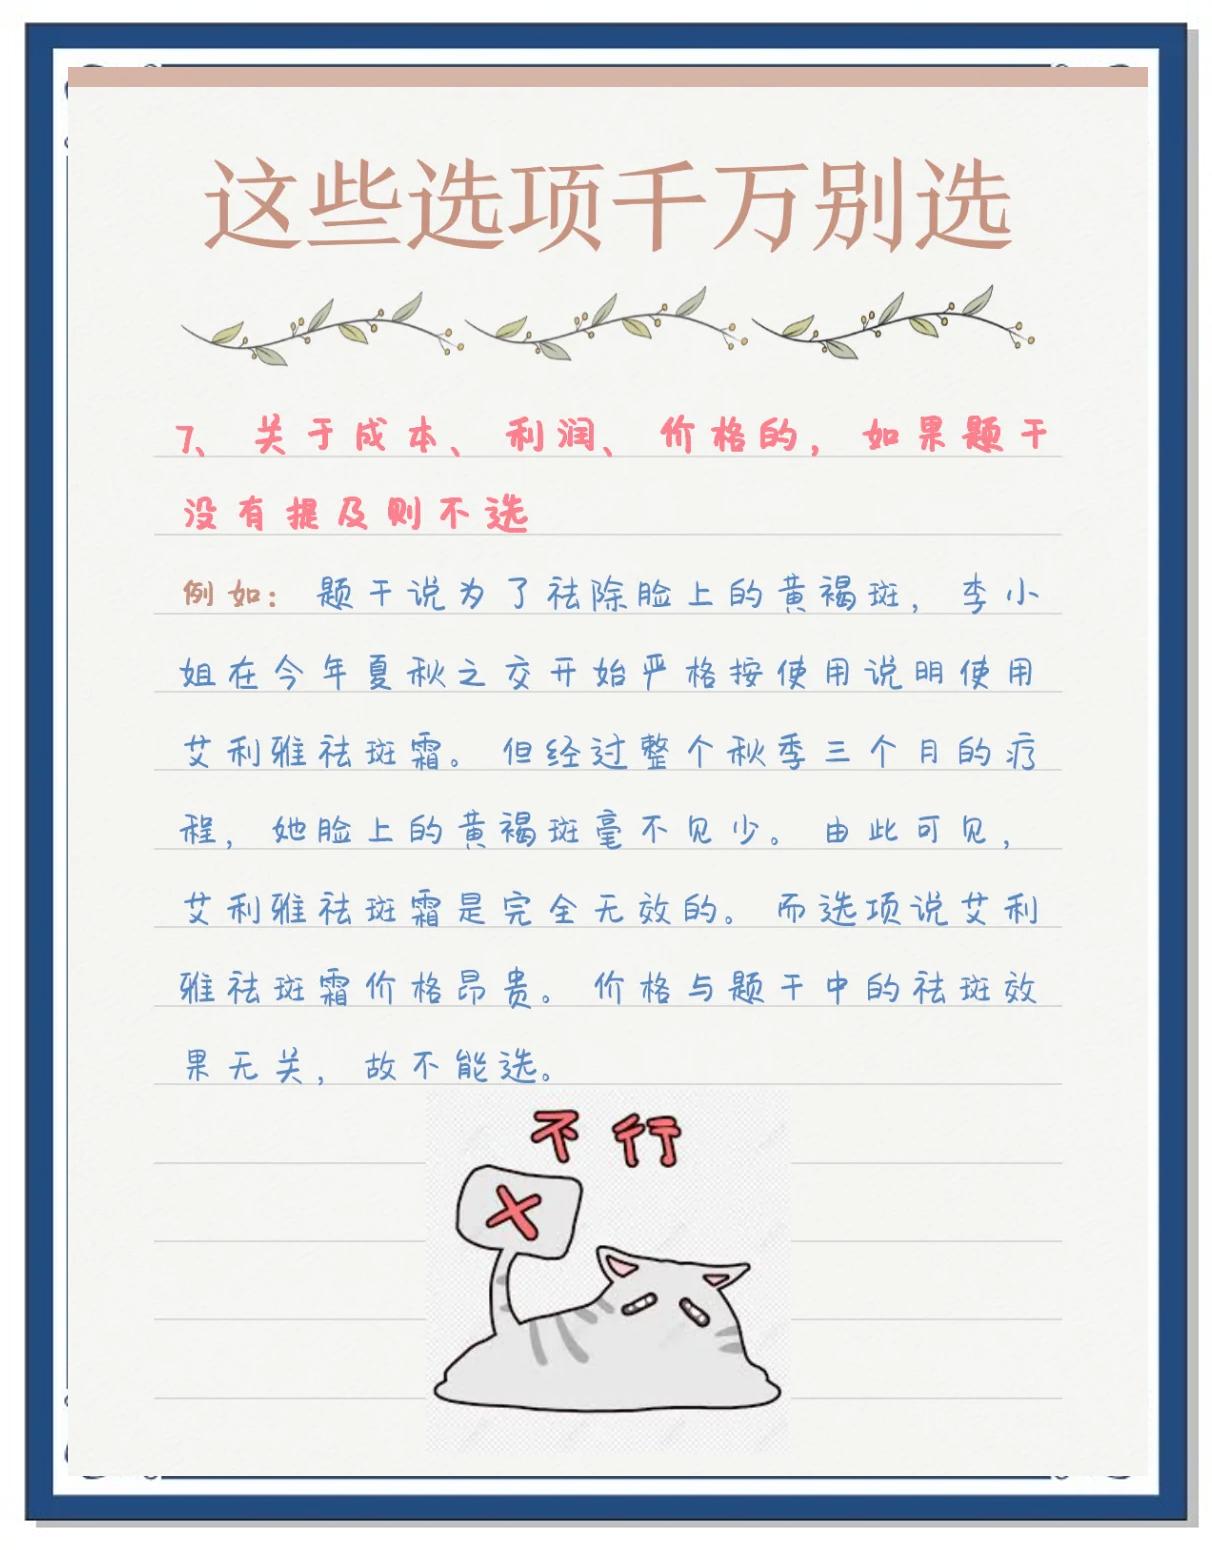 这些选项千万别选
7、关于成本、利润、价格的，如果题干
没有提及则不选
例如：题干说为了祛除脸上的黄褐斑，李小
姐在今年夏秋之交开始严格按使用说明使用
艾利雅祛斑霜。但经过整个秋季三个月的疗
程，她脸上的黄褐斑毫不见少。由此可见，
艾利雅祛斑霜是完全无效的。而选项说艾利
雅祛斑霜价格昂贵。价格与题干中的祛斑效
果无关，故不能选。
不行